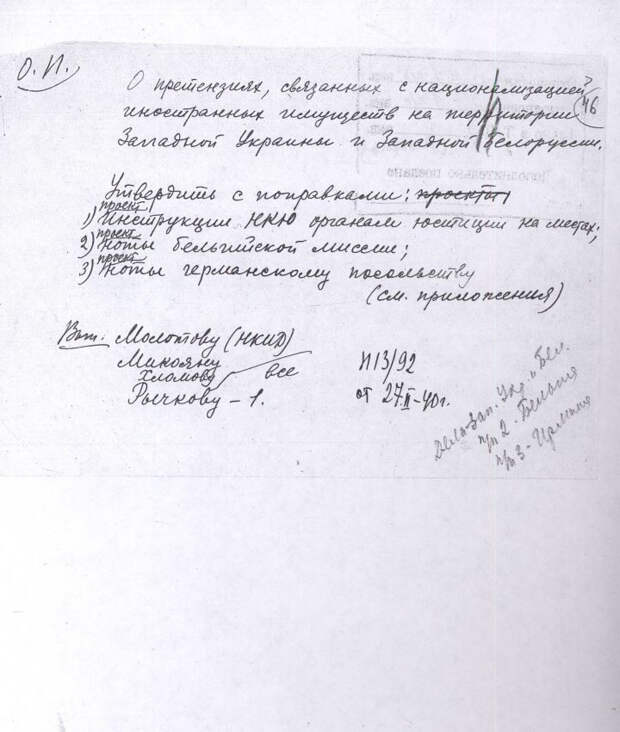 О. П.
О претензиях, связанных с национализацией
46
иностранных имуществ на территории
Западной Украины и Западной Белоруссии.
Утвердить с поправками: проекты
1) проект Инструкции НКЮ органам юстиции на местах;
2) проект ноты бельгийской миссии;
3) проект ноты германскому посольству
(см. приложения)
Вып. Молотову (НКИД)
Микояну
Хломову
все
Рычкову – 1.
П13/92
от 27.II–40г.
Дело-Зап. Укр. и Бел.
п/п 2 - Бельгия
п/п 3 - Германия